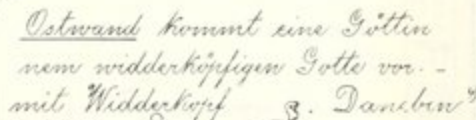 Ostwand kommt eine Göttin
nem widderköpfigen Gotte vor. –
mit Widderkopf 8. Daneben